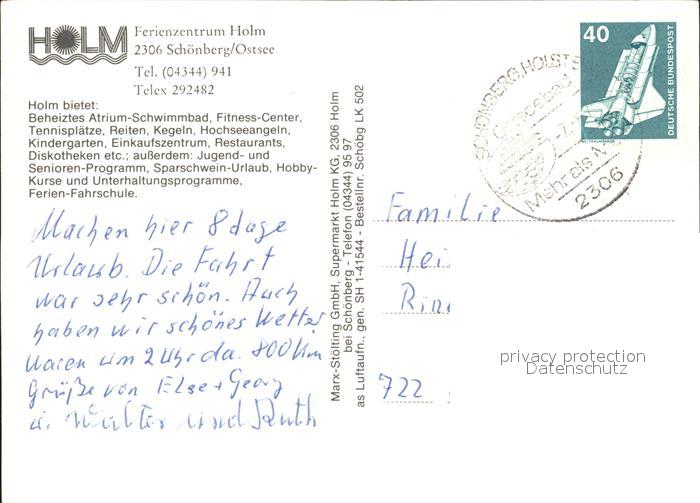 HOLM
Ferienzentrum Holm
2306 Schönberg/Ostsee
Tel. (04344) 941
Telex 292482
Holm bietet:
Beheiztes Atrium-Schwimmbad, Fitness-Center,
Tennisplätze, Reiten, Kegeln, Hochseeangeln,
Kindergarten, Einkaufszentrum, Restaurants,
Diskotheken etc.; außerdem: Jugend- und
Senioren-Programm, Sparschwein-Urlaub, Hobby-
Kurse und Unterhaltungsprogramme,
Ferien-Fahrschule.
Machen hier 8 dage
Urlaub. Die Fahrt
war sehr schön. Auch
haben wir schönes Wetter
Waren um 2 Uhr da. 800 Km
Grüße von Else + Georg
u. Walter und Ruth
Marx-Stölting GmbH, Supermarkt Holm KG, 2306 Holm
bei Schönberg - Telefon (04344) 95 97
as Luftaufn., gen. SH 1-41544 - Bestellnr. Schöbg LK 502
40
DEUTSCHE BUNDESPOST
SCHÖNBERG, HOLST
Ostseebad
Mehr als
2306
Familie
Hei
Rin
722
privacy protection
Datenschutz